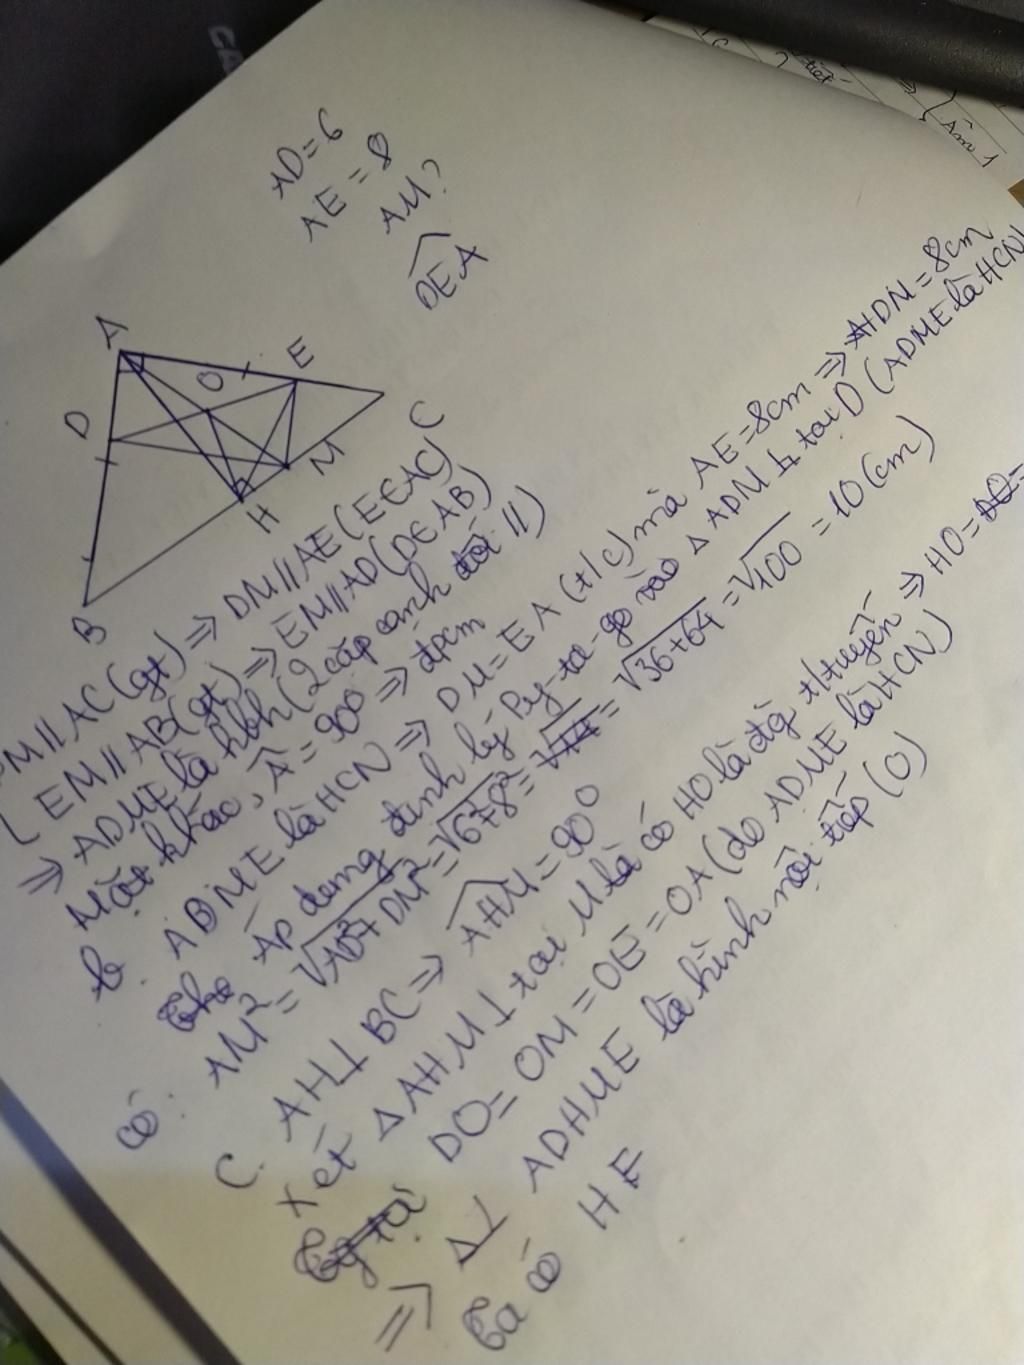 AD=6
AE=8
AM?
DEA
A
D
O
E
B
H
M
C
DM//AC(gt) => DM//AE(E∈AC)
EM//AB(gt) => EM//AD(D∈AB)
=> ADME là hbh(2 cặp cạnh đối //)
Mặt khác, Â=90° => đpcm
b. ADME là HCN => DM=EA(t/c) mà AE=8cm => DM=8cm
Áp dụng định lý Py-ta-go vào △ADM ⊥ tại D (ADME là HCN)
có: AM²=√AD²+DM²=√6²+8²=√36+64=√100=10(cm)
C. AH⊥BC => AHM=90°
Xét △AHM ⊥ tại M là có HO là đg t/tuyến => HO=
DO=OM=OE=OA(do ADME là HCN)
=> ADHME là hình nội tiếp (O)
Ta có HE